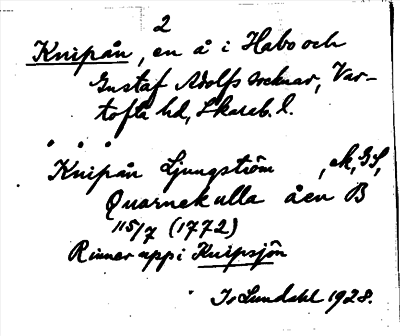 2
Knipån, en å i Habo och
Gustaf Adolfs socknar, Var-
tofta hd, Skarab. l.
Knipån Ljungström , ek, GS,
Qvarnekulla åen B
115/7 (1772)
Rinner upp i Knipsjön
I. Lundahl 1928.